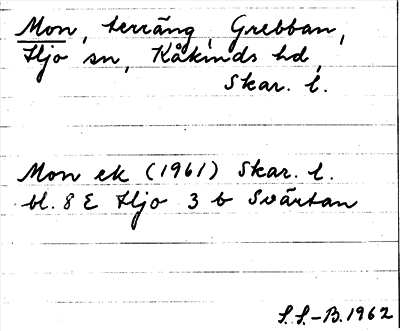 Mon, terräng, Grebban,
Hjo sn, Kåkinds hd,
Skar. l.
Mon ek (1961) Skar. l.
bl. 8 E Hjo 3 b Svärtan
S.S.-B. 1962